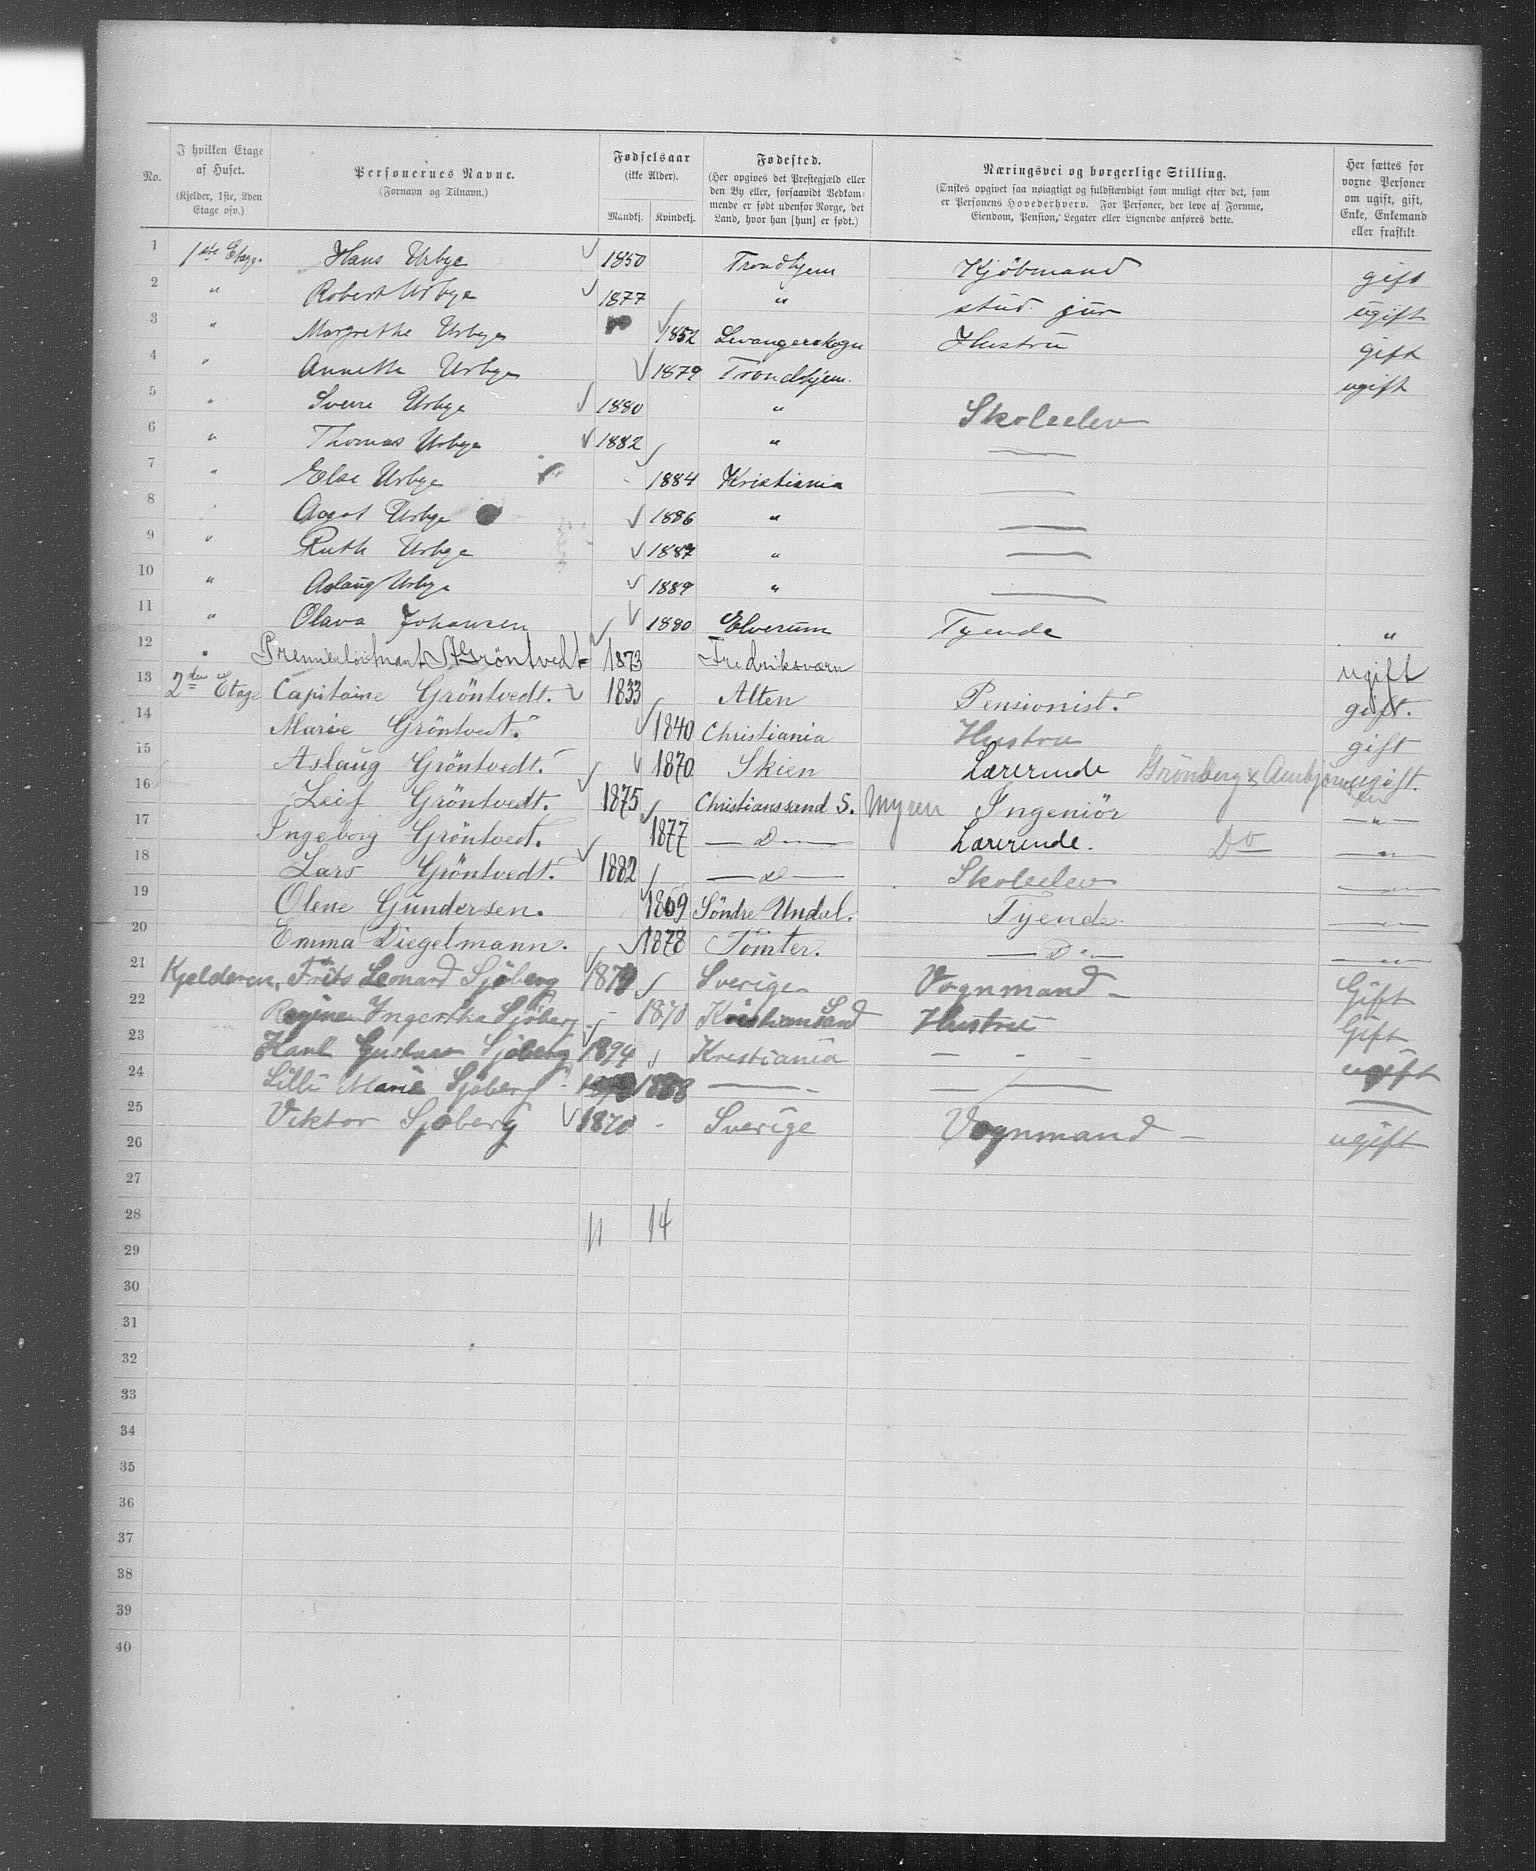 No. | I hvilken Etage af Huset. (Kjelder, 1ste, 2den Etage osv.) | Personernes Navne. (Fornavn og Tilnavn.) | Fødselsaar (ikke Alder). Mandkj. Kvindekj. | Fødested. (Her opgives det Prestegjæld eller den By eller, forsaavidt Vedkommende er født udenfor Norge, det Land, hvor han [hun] er født.) | Næringsvei og borgerlige Stilling. (Ønskes opgivet saa nøiagtigt og fuldstændigt som muligt efter det, som er Personens Hovederhverv. For Personer, der leve af Formue, Eiendom, Pension, Legater eller Lignende anføres dette. | Her sættes for voxne Personer om ugift, gift, Enke, Enkemand eller fraskilt.
1 1ste Etage. Hans Urbye 1850 Trondhjem Kjöbmand gift
2 " Robert Urbye 1877 " stud. jur ugift
3 " Margrethe Urbye 1852 Levangerskogn Hustru gift
4 " Annetta Urbye 1879 Trondhjem. ugift
5 " Sverre Urbye 1880 " Skoleelev
6 " Thomas Urbye 1882 " —
7 " Else Urbye 1884 Kristiania —
8 " Aagot Urbye 1886 " —
9 " Ruth Urbye 1887 " —
10 " Aslaug Urbye 1889 " —
11 " Olava Johansen 1880 Elverum Tyende "
12 " Premierløitnant Gröntvedt 1873 Fredriksværn ugift
13 2den Etage Capitaine Gröntvedt. 1833 Alten Pensionist. gift.
14 Marie Gröntvedt. 1840 Christiania Hustru gift
15 Aslaug Gröntvedt. 1870 Skien Lærerinde Grönberg & ugift.
16 Leif Gröntvedt. 1875 Christianssand S. Myren Ingeniör — " —
17 Ingeborg Gröntvedt. 1877 — D — Lærerinde. Do — " —
18 Lars Gröntvedt. 1882 — D — Skoleelev — " —
19 Olene Gundersen. 1869 Söndre Undal. Tyende — " —
20 Emma Diegelmann. 1878 Tomter. — D — — " —
21 Kjelderen, Frits Leonard Sjöberg 1870 Sverige Vognmand Gift
22 Regine Sjöberg 1870 Kristiansand Hustru Gift
23 Karl Gustav Sjöberg 1894 Kristiania — - — ugift
24 Lilli Marie Sjöberg 1888 — — —
25 Viktor Sjöberg 1870 - Sverige Vognmand — ugift
26
27
28 11 14
29
30
31
32
33
34
35
36
37
38
39
40